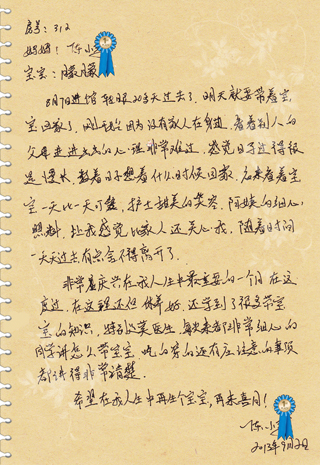 房号：312
妈妈：陈小
宝宝：朦朦
8月7日进馆 转眼20多天过去了，明天就要带着宝
宝回家了，刚开始因为没有家人在身边，看着别人的
父母走进走出的心里非常难过，感觉日子过得很
是漫长，数着日子想着什么时候回家，后来看着宝
宝一天比一天可爱，护士甜美的笑容，阿姨的细心
照料，让我感觉比家人还关心我，随着时间
一天天过去有点舍不得离开了。
非常庆兴在我人生中最重要的一个月在这
度过，在这里不但保养好，还学到了很多带宝
宝的知识，特别 医生，每次来都非常细心的
同学讲怎么带宝宝 吃的穿的还有应注意的事项
都讲得非常清楚。
希望在我人生中再生个宝宝，再来喜月！
陈小
2013年9月2日